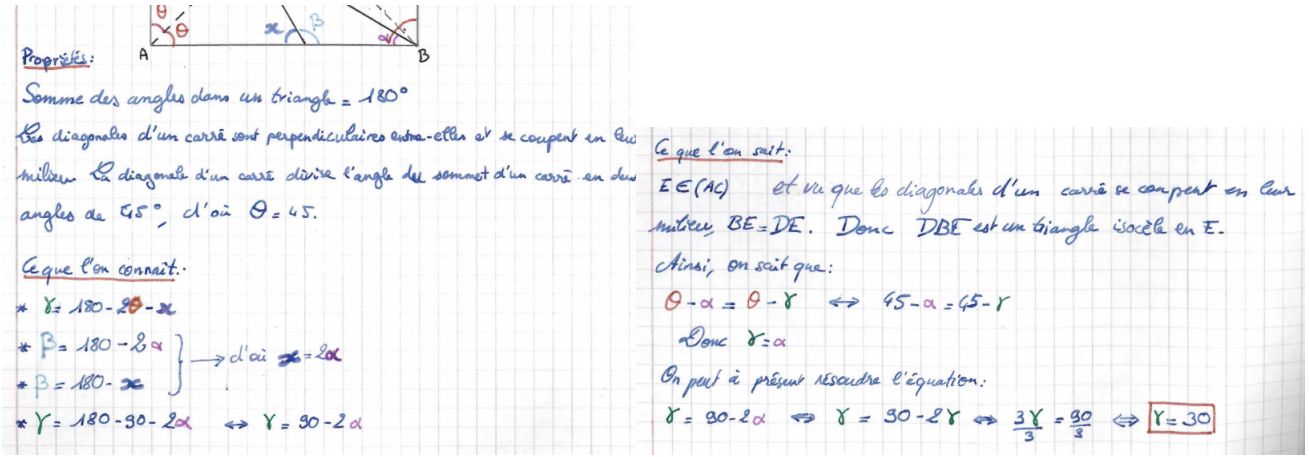 θ
θ x β α
A B
Propriétés:
Somme des angles dans un triangle = 180°
Les diagonales d'un carré sont perpendiculaires entre-elles et se coupent en leur
milieu La diagonale d'un carré divise l'angle du sommet d'un carré en deux
angles de 45°, d'où θ = 45.
Ce que l'on connait:
* γ = 180-2θ-x
* β = 180-2α
→ d'où x = 2α
* β = 180-x
* γ = 180-90-2α ⇔ γ = 90-2α
Ce que l'on sait:
E∈(AC) et vu que les diagonales d'un carré se coupent en leur
milieu, BE = DE. Donc DBE est un triangle isocèle en E.
Ainsi, on sait que:
θ-α = θ-γ ⇔ 45-α = 45-γ
Donc γ = α
On peut à présent résoudre l'équation:
γ = 90-2α ⇔ γ = 90-2γ ⇔ 3γ/3 = 90/3 ⇔ γ = 30